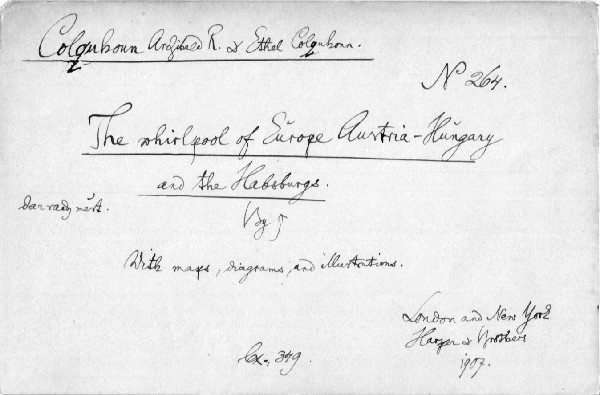 Colquhoun Archibald R. & Ethel Colquhoun.
N° 264.
The whirlpool of Europe Austria-Hungary
and the Habsburgs.
By
With maps, diagrams, and illustrations.
London and New York
Harper & Brothers
1907.
349.